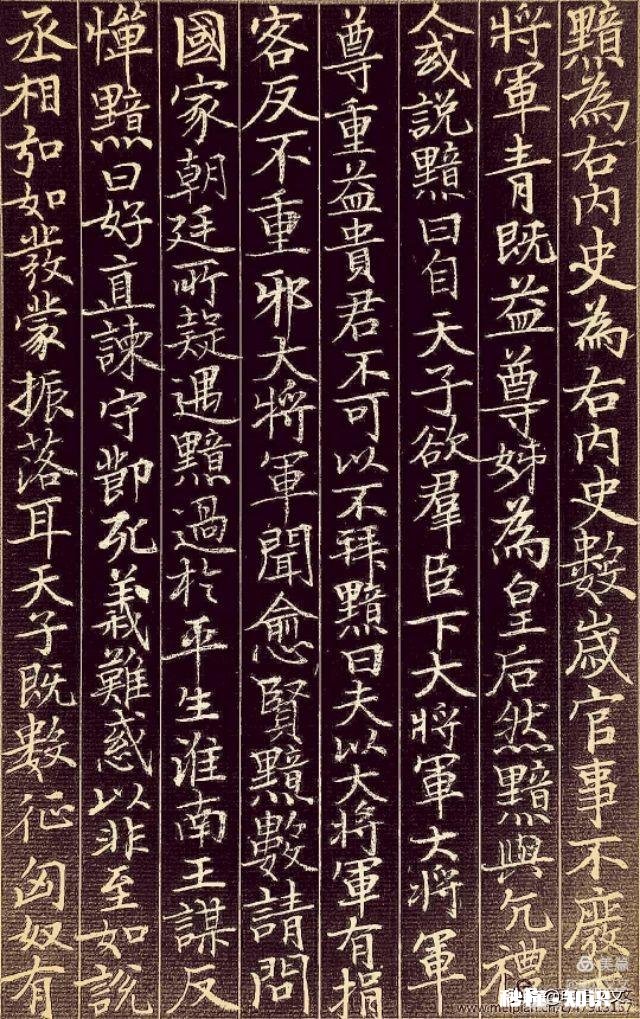 黯為右内史為右内史數歲官事不廢
將軍青既益尊姊為皇后然黯與亢禮
人或說黯曰自天子欲羣臣下大將軍大將軍
尊重益貴君不可以不拜黯曰夫以大將軍有揖
客反不重邪大將軍聞愈賢黯數請問
國家朝廷所疑遇黯過於平生淮南王謀反
憚黯曰好直諫守節死義難惑以非至如說
丞相弘如發蒙振落耳天子既數征匈奴有
美篇